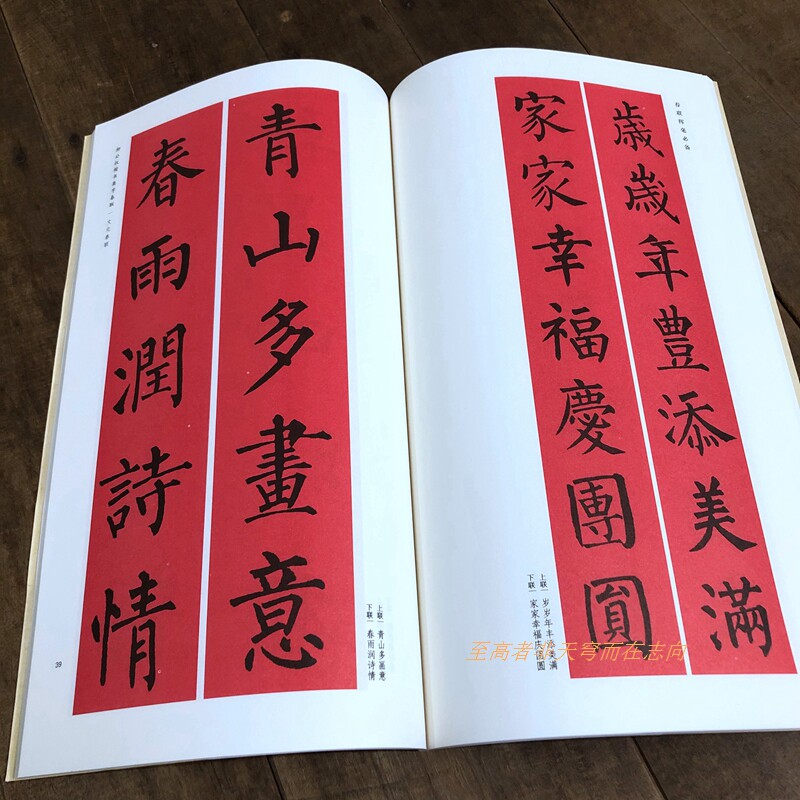 春联挥毫必备
歳嵗年豐添美滿
家家幸福慶團圓
上联 | 岁岁年丰添美满
下联 | 家家幸福庆团圆
青山多畫意
春雨潤詩情
上联 | 青山多画意
下联 | 春雨润诗情
39
至高者 天穹而在志向